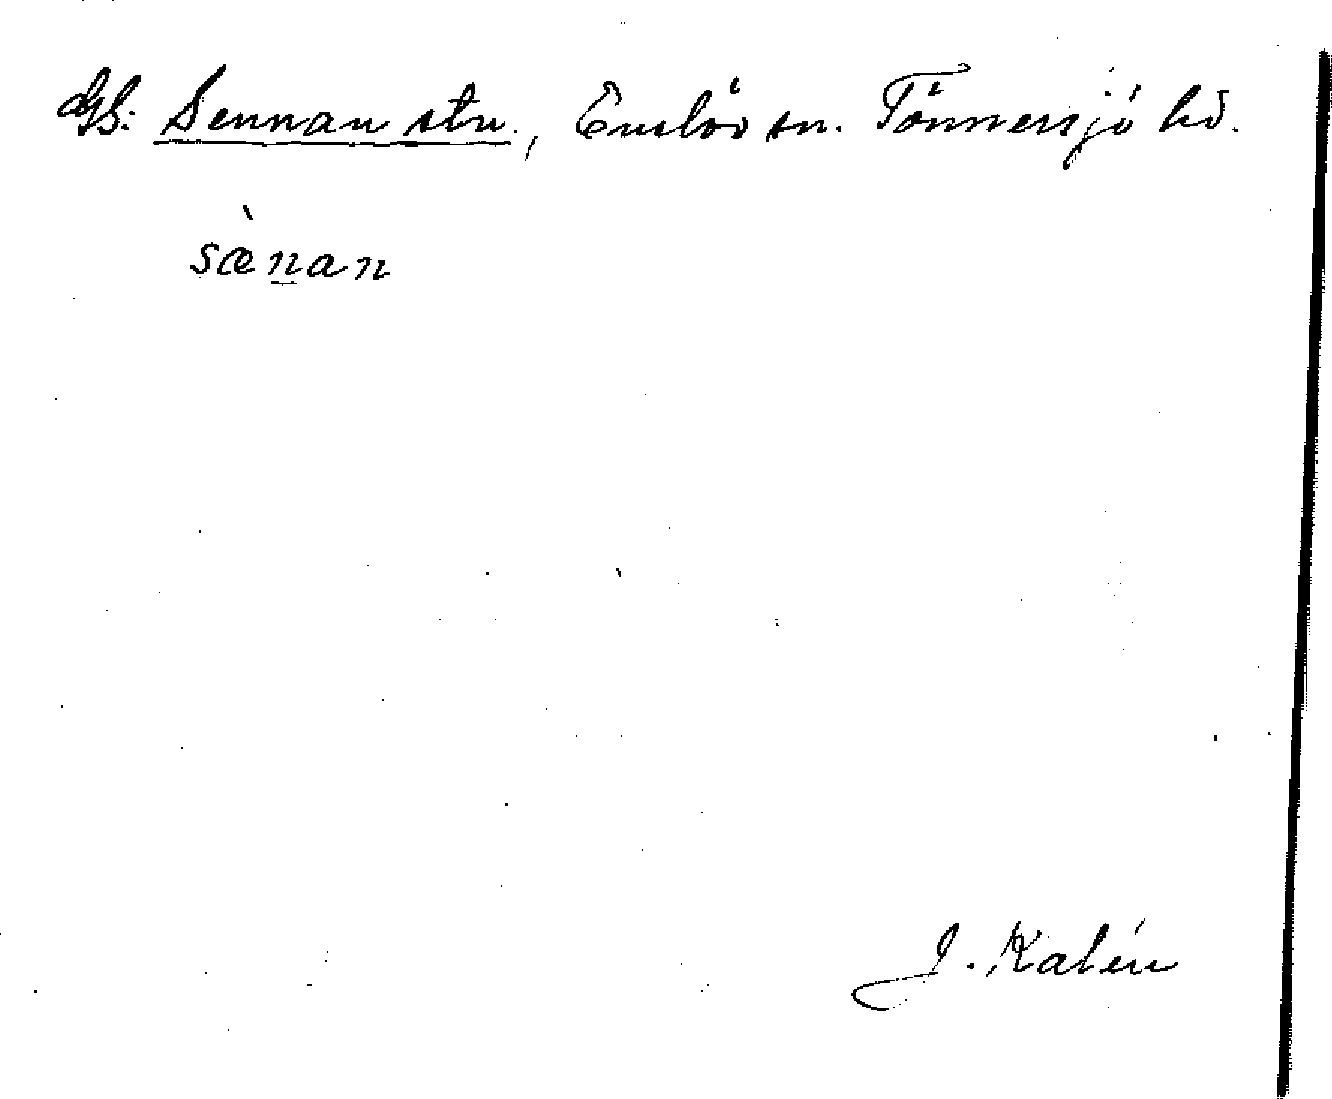 Gh: Sennan stn., Enslöv sn. Tönnersjö hd.
sæ̀n̲an
J. Kalén